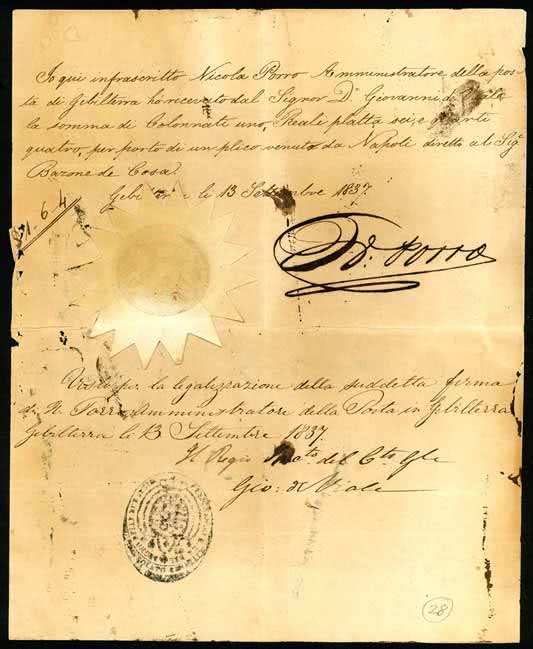 Io qui infrascritto Nicola Porro Amministratore della pos-
ta di Gibilterra hò ricevuto dal Signor Dn Giovanni de
la somma di Colonnati uno, Reali platta sei, e quarti
quattro, per porto di un plico venuto da Napoli diretto al Sigr
Barone de Cosa.
li 13 Settembre 1837.
1. 6. 4
N. Porro
Visto per la legalizzazione della suddetta firma
di N. Porro Amministratore della Posta in Gibilterra
Gibilterra li 13 Settembre 1837.
Il Regio del Cte Gle
Gio: de Viale
28